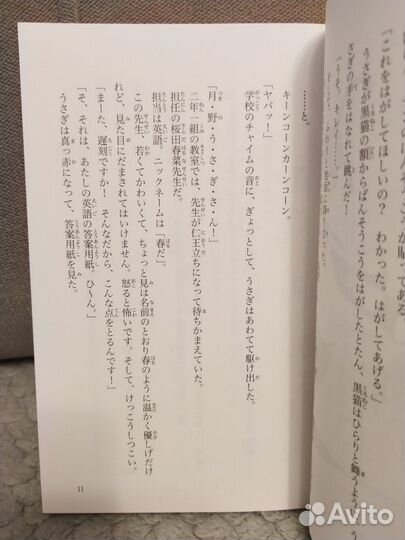 「これをはがしてほしいの? わかった。はがしてあげる。」
うさぎが黒猫の額からばんそうこうをはがしたとたん、黒猫はひらりと舞うよう
さぎの手をはなれて跳んだ!
……と。
キーンコーンカーンコーン。
「ヤバッ!」
学校のチャイムの音に、ぎょっとして、うさぎはあわてて駆け出した。
「月・野・う・さ・ぎ・さ・ん!」
二年一組の教室では、先生が仁王立ちになって待ちかまえていた。
担任の桜田春菜先生だ。
担当は英語。ニックネームは「春だ」。
この先生、若くてかわいくて、ちょっと見は名前のとおり春のように温かく優しげだけ
れど、見た目にだまされてはいけません。怒ると怖いです。そして、けっこうしつこい。
「まーた、遅刻ですか! そんなだから、こんな点をとるんです!」
「そ、それは、あたしの英語の答案用紙。ひ〜ん。」
うさぎは真っ赤になって、答案用紙を見た。
11
Avito